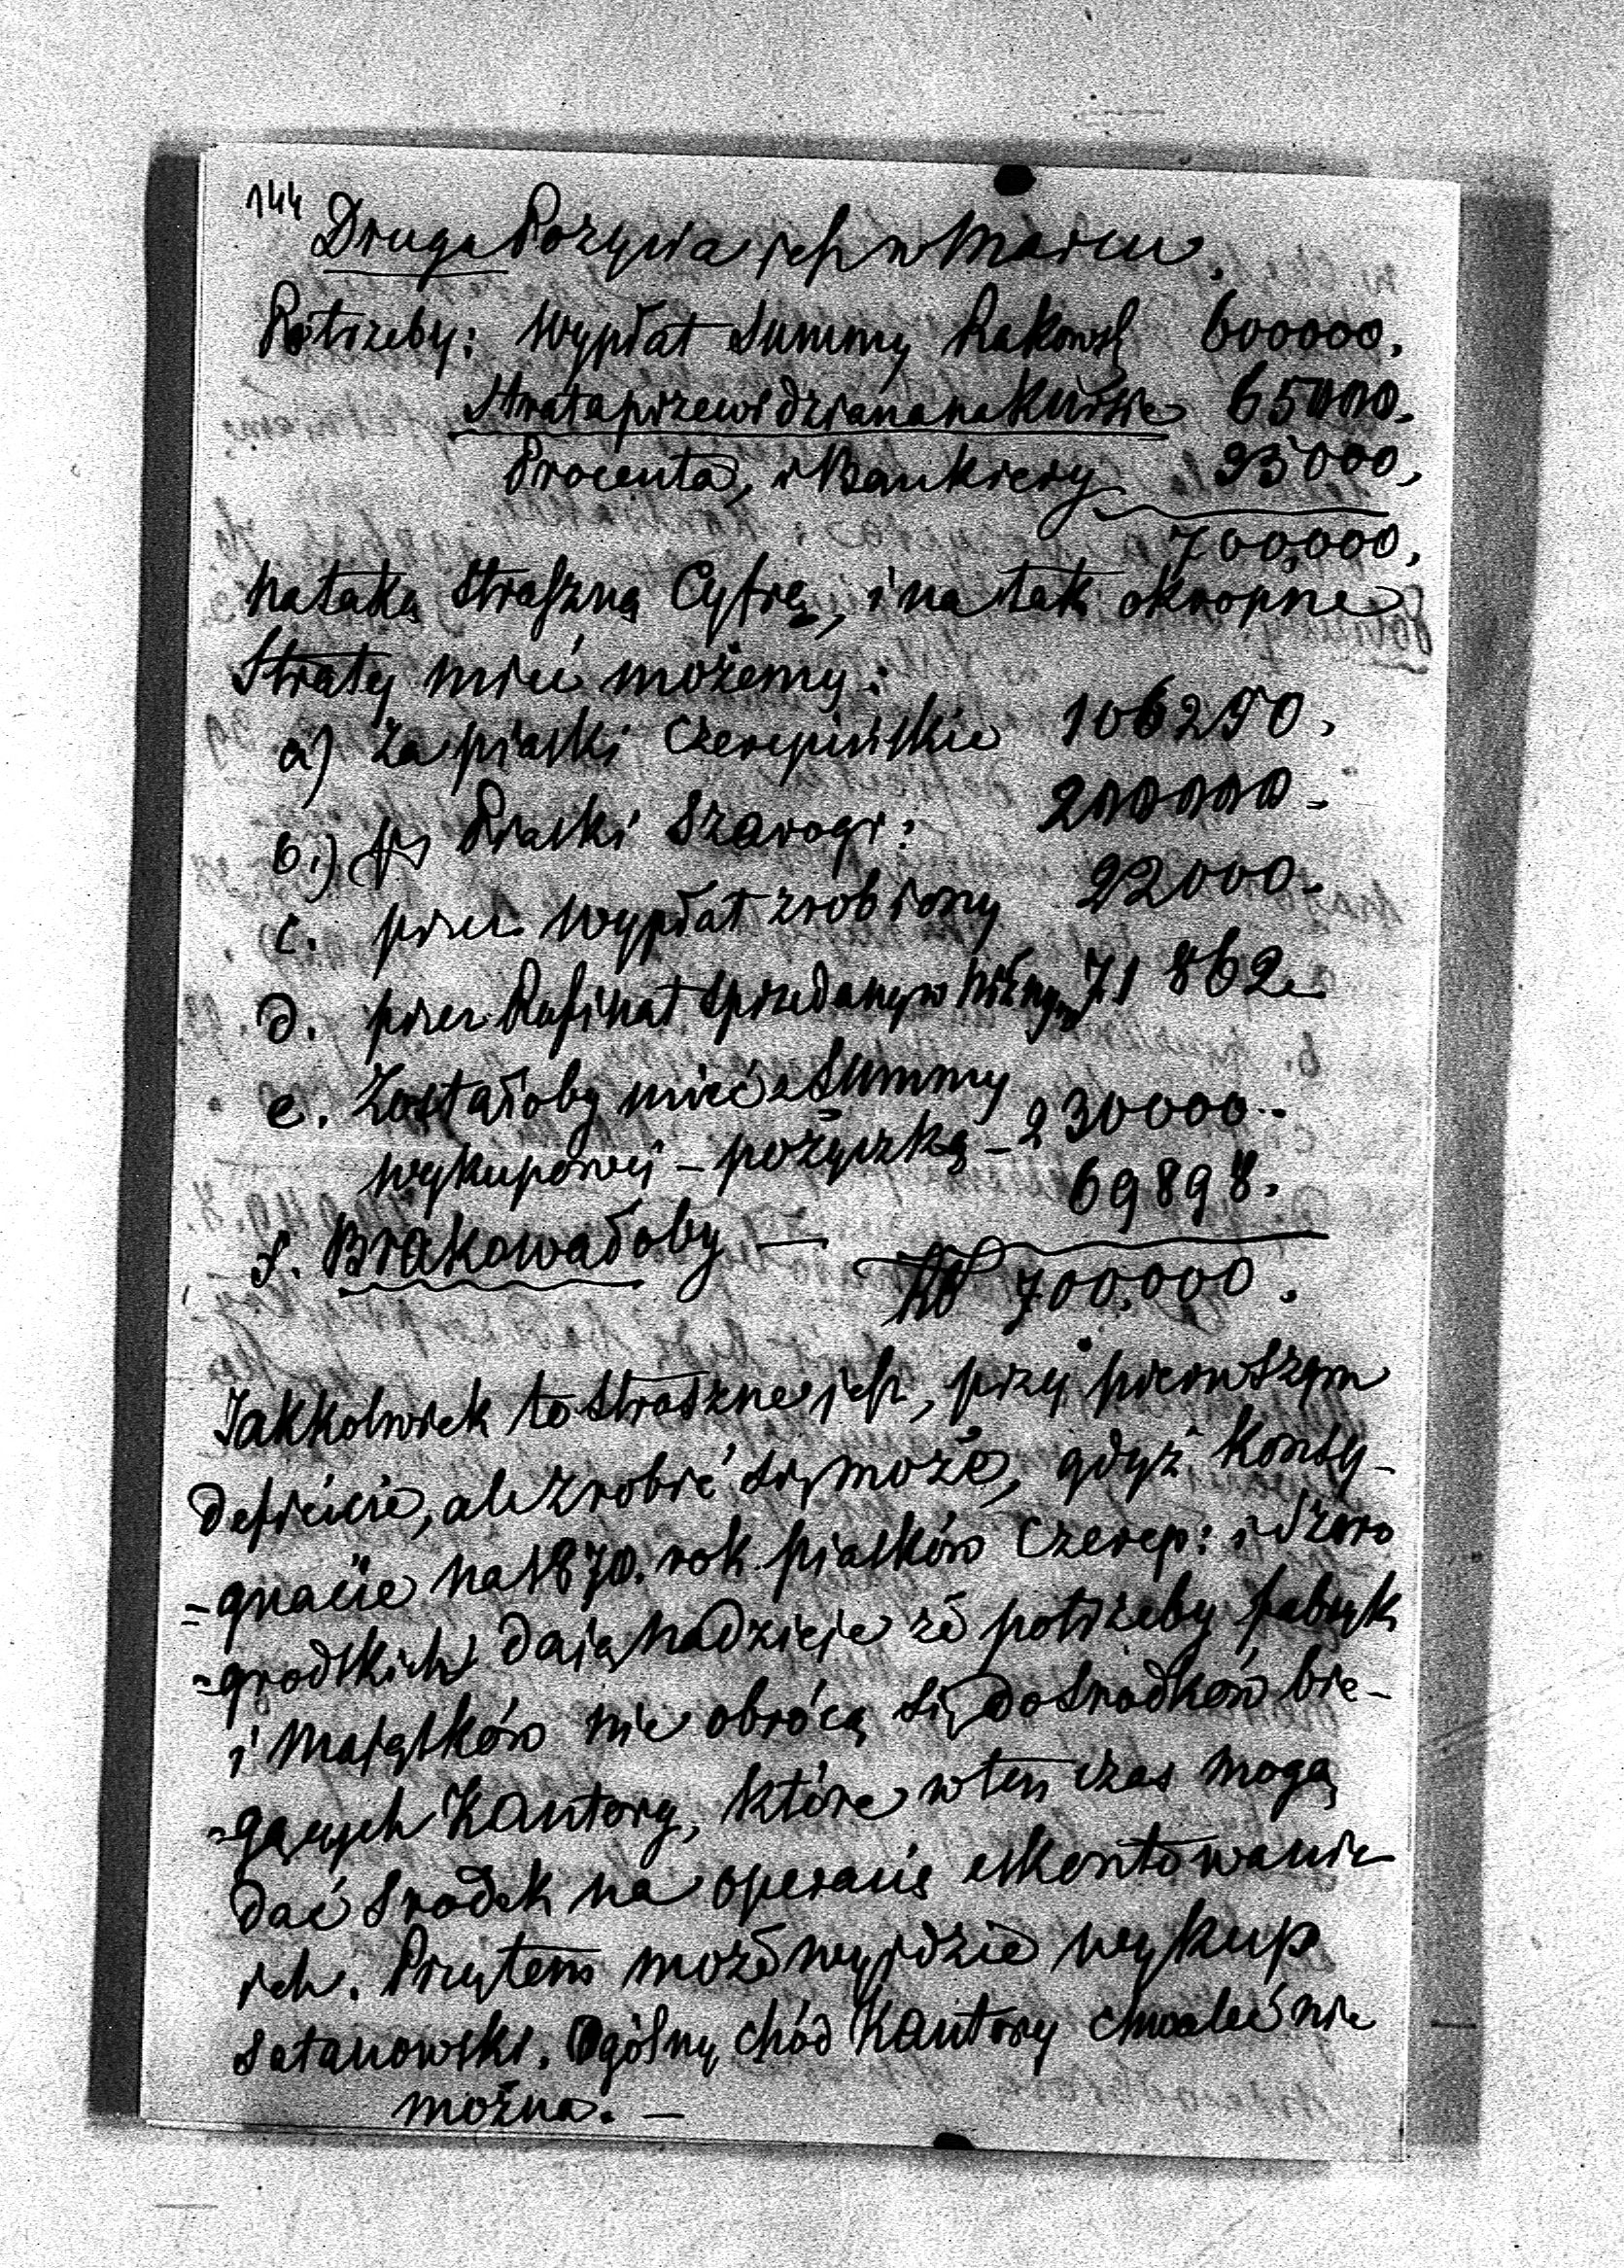 144
Druga Pozycia jest w Marcu.
Potrzeby: Wypłat Summy Rakowsk 600000.
Strata przewidziana na Kursie 65000.
Procenta, i Bankiery 35000,
700,000,
Na taką Straszną Cyfrę, i na tak okropne
Straty mieć możemy:
a) za piaski Czerepińskie 106250.
b.) Piaski Szarogr: 200000.
c. przez wypłat zrobiony 22000.
d. przez Rafinat sprzedany w Niżnym 71 862
e. Zostałoby mieć z Summy
wykupowej - pożyczką - 230000.
69898.
f. Brakowałoby —
700.000.
Jakkolwiek to straszne jest, przy pierwszym
deficicie, ale zrobić się może, gdyż konsy-
=gnacie na 1870. rok piasków Czerep: i Szaro
=grodskich dają nadzieje że potrzeby fabryk
i Majątków nie obrócą się do srodków bie-
=gących Kantory, które w ten czas mogą
dać srodek na operacię eskontowanie
ich. Przytem może wyjdzie wykup
satanowski. Ogólny chód Kantory chwalić nie
można. —